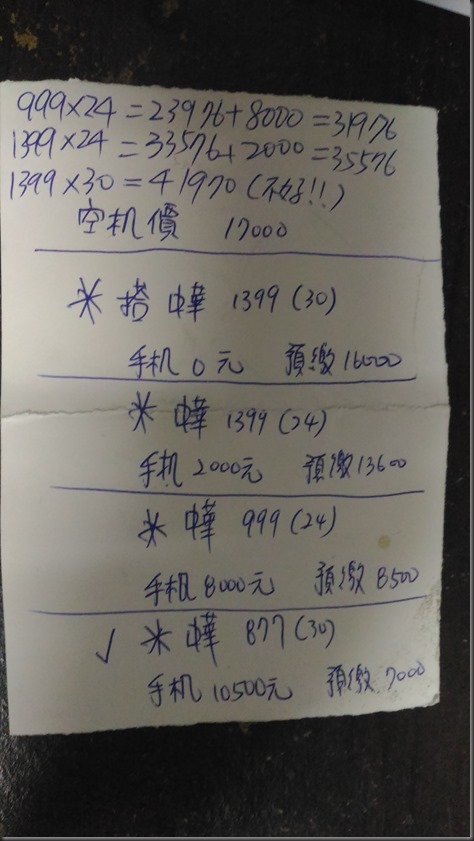 999×24=23976+8000=31976
1399×24=33576+2000=35576
1399×30=41970(不好!!)
空机價 17000
* 搭 中華 1399(30)
手机 0元 預繳16000
* 中華 1399(24)
手机2000元 預繳13600
* 中華 999(24)
手机8000元 預繳8500
✓ * 中華 877(30)
手机10500元 預繳7000